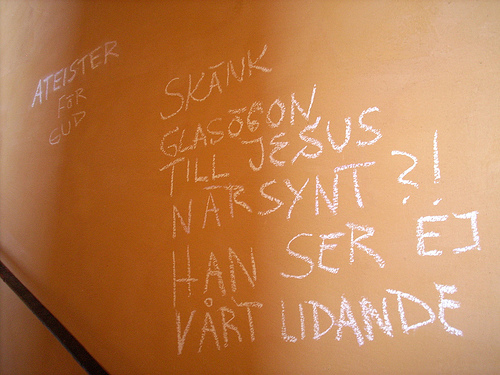 ATEISTER
FÖR
GUD
SKÄNK
GLASÖGON
TILL JESUS
NÄRSYNT?!
HAN SER EJ
VÅRT LIDANDE